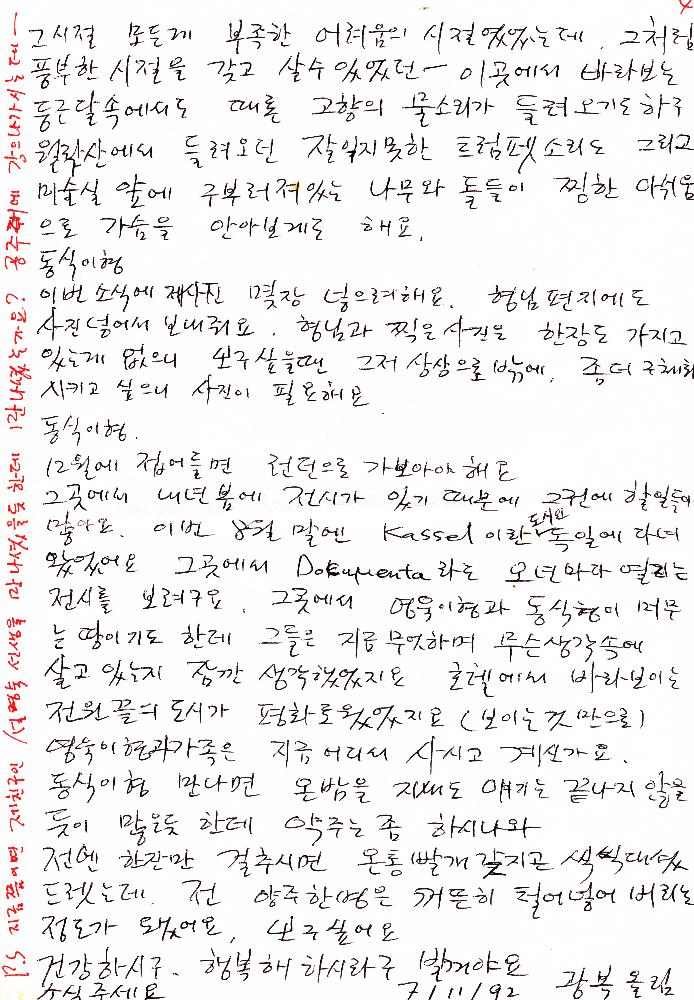 4
그시절 모든게 부족한 어려움의 시절였었는데. 그처럼
풍부한 시절을 갖고 살수 있었던— 이곳에서 바라보는
둥근달속에서도 때론 고향의 물소리가 들려오기도 하구
월락산에서 들려오던 잘익지못한 트럼펫소리도 그리고
미술실 앞에 구부러져있는 나무와 돌들이 찡한 아쉬움
으로 가슴을 안아보게도 해요.
동식이형
이번 소식에 제사진 몇장 넣으려해요. 형님편지에도
사진넣어서 보내줘요. 형님과 찍은사진을 한장도 가지고
있는게 없으니 보구싶을땐 그저 상상으로 밖에, 좀더 구체화
시키고 싶으니 사진이 필요해요
동식이형.
12월에 접어들면 런던으로 가보아야 해요
그곳에서 내년 봄에 전시가 있기 때문에 그전에 할일들이
많아요. 이번 8월 말엔 Kassel 이란 도시인 독일에 다녀
왔었어요 그곳에서 Dokumenta 라는 오년마다 열리는
전시를 보려구요. 그곳에서 영욱이형과 동식형이 머무
는 땅이기도 한데 그들은 지금 무엇하며 무슨생각속에
살고 있는지 잠깐 생각했었지요 호텔에서 바라보이는
전원 끝의 도시가 평화로웠었지요 (보이는것 만으로)
영욱이형과가족은 지금 어디서 사시고 계신가요.
동식이형 만나면 온밤을 지새도 얘기는 끝나지 않을
듯이 많을듯 한데 약주는 좀 하시나와
전엔 한잔만 걸추시면 온통빨개 갖지곤 씩씩대셨
드랬는데. 전 양주한병은 거뜬히 털어넣어 버리는
정도가 됐어요, 보구싶어요
건강하시구. 행복해 하시라구 빌꺼야요
소식주세요 7/11/92 광복 올림
P.S 지금쯤이면 제친구인 선생을 만나셨을듯한데 만나셨는지요? 공주대에 강의나가시는데—